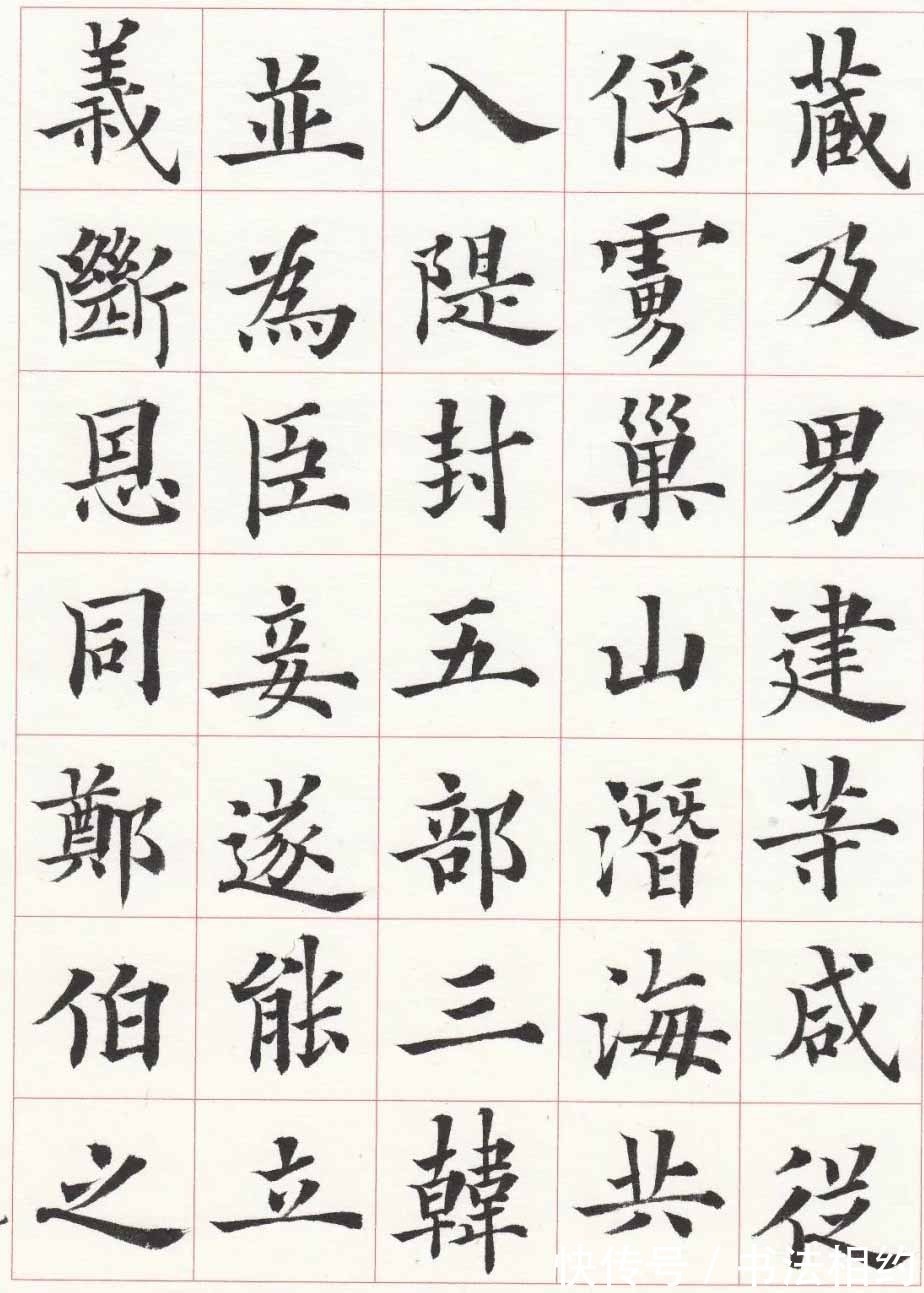 藏及男建等咸從
俘虜巢山潛海共
入隄封五部三韓
並為臣妾遂能立
義斷恩同鄭伯之
快传号 / 书法相约